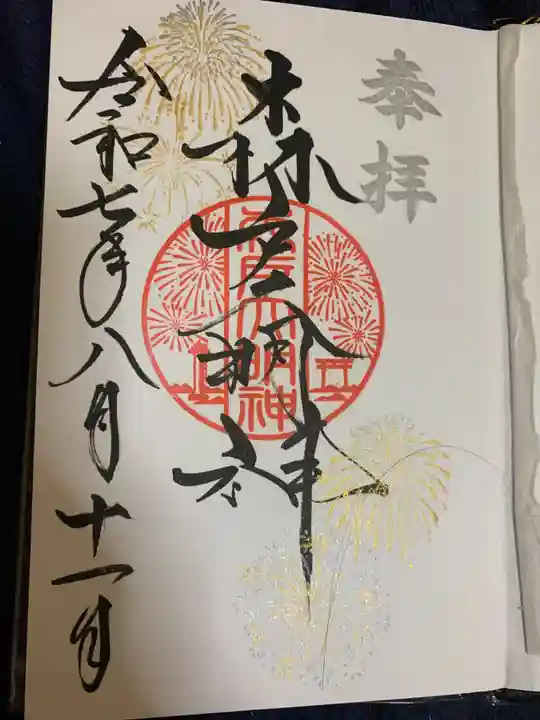 奉拝
森戸大明神
森戸大明神
令和七年八月十一日